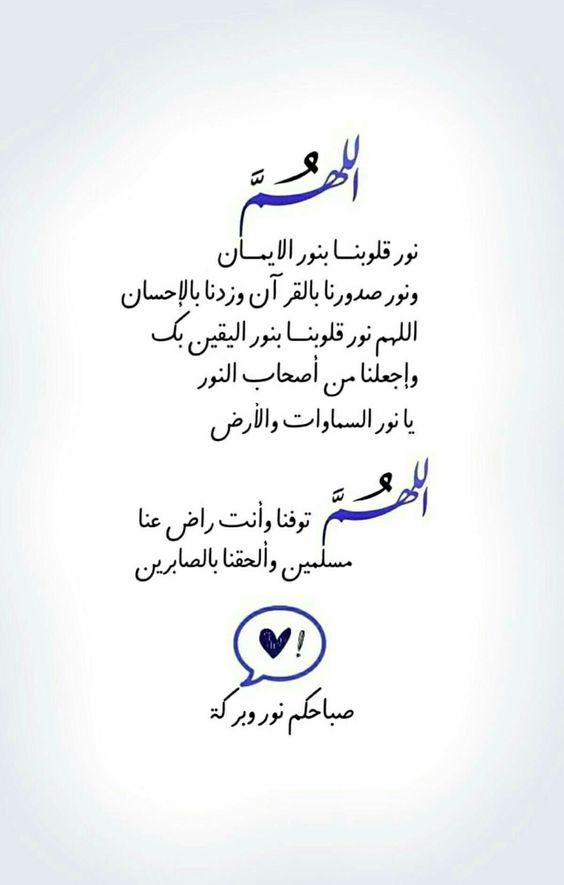 اللهُمَّ
نور قلوبنـــا بنور الايمـــان
ونور صدورنا بالقرآن وزدنا بالإحسان
اللهم نور قلوبنـــا بنور اليقين بك
وإجعلنا من أصحاب النور
يا نور السماوات والأرض
اللهُمَّ توفنا وأنت راض عنا
مسلمين وألحقنا بالصابرين
!
صباحكم نور وبركة